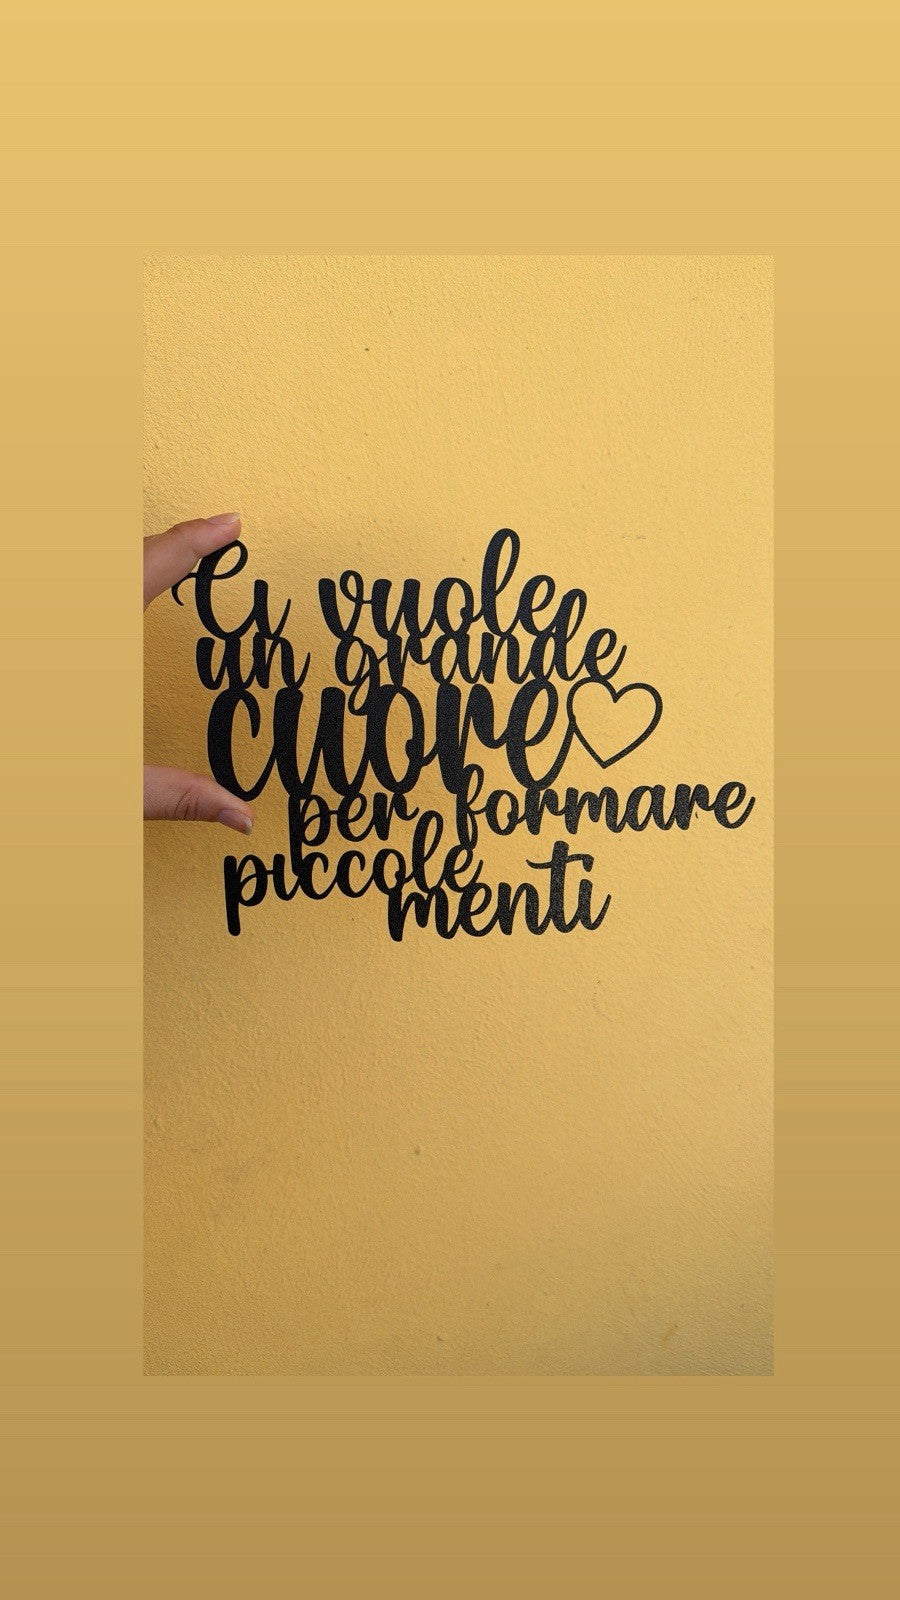 Ci vuole
un grande
cuore
per formare
piccole
menti